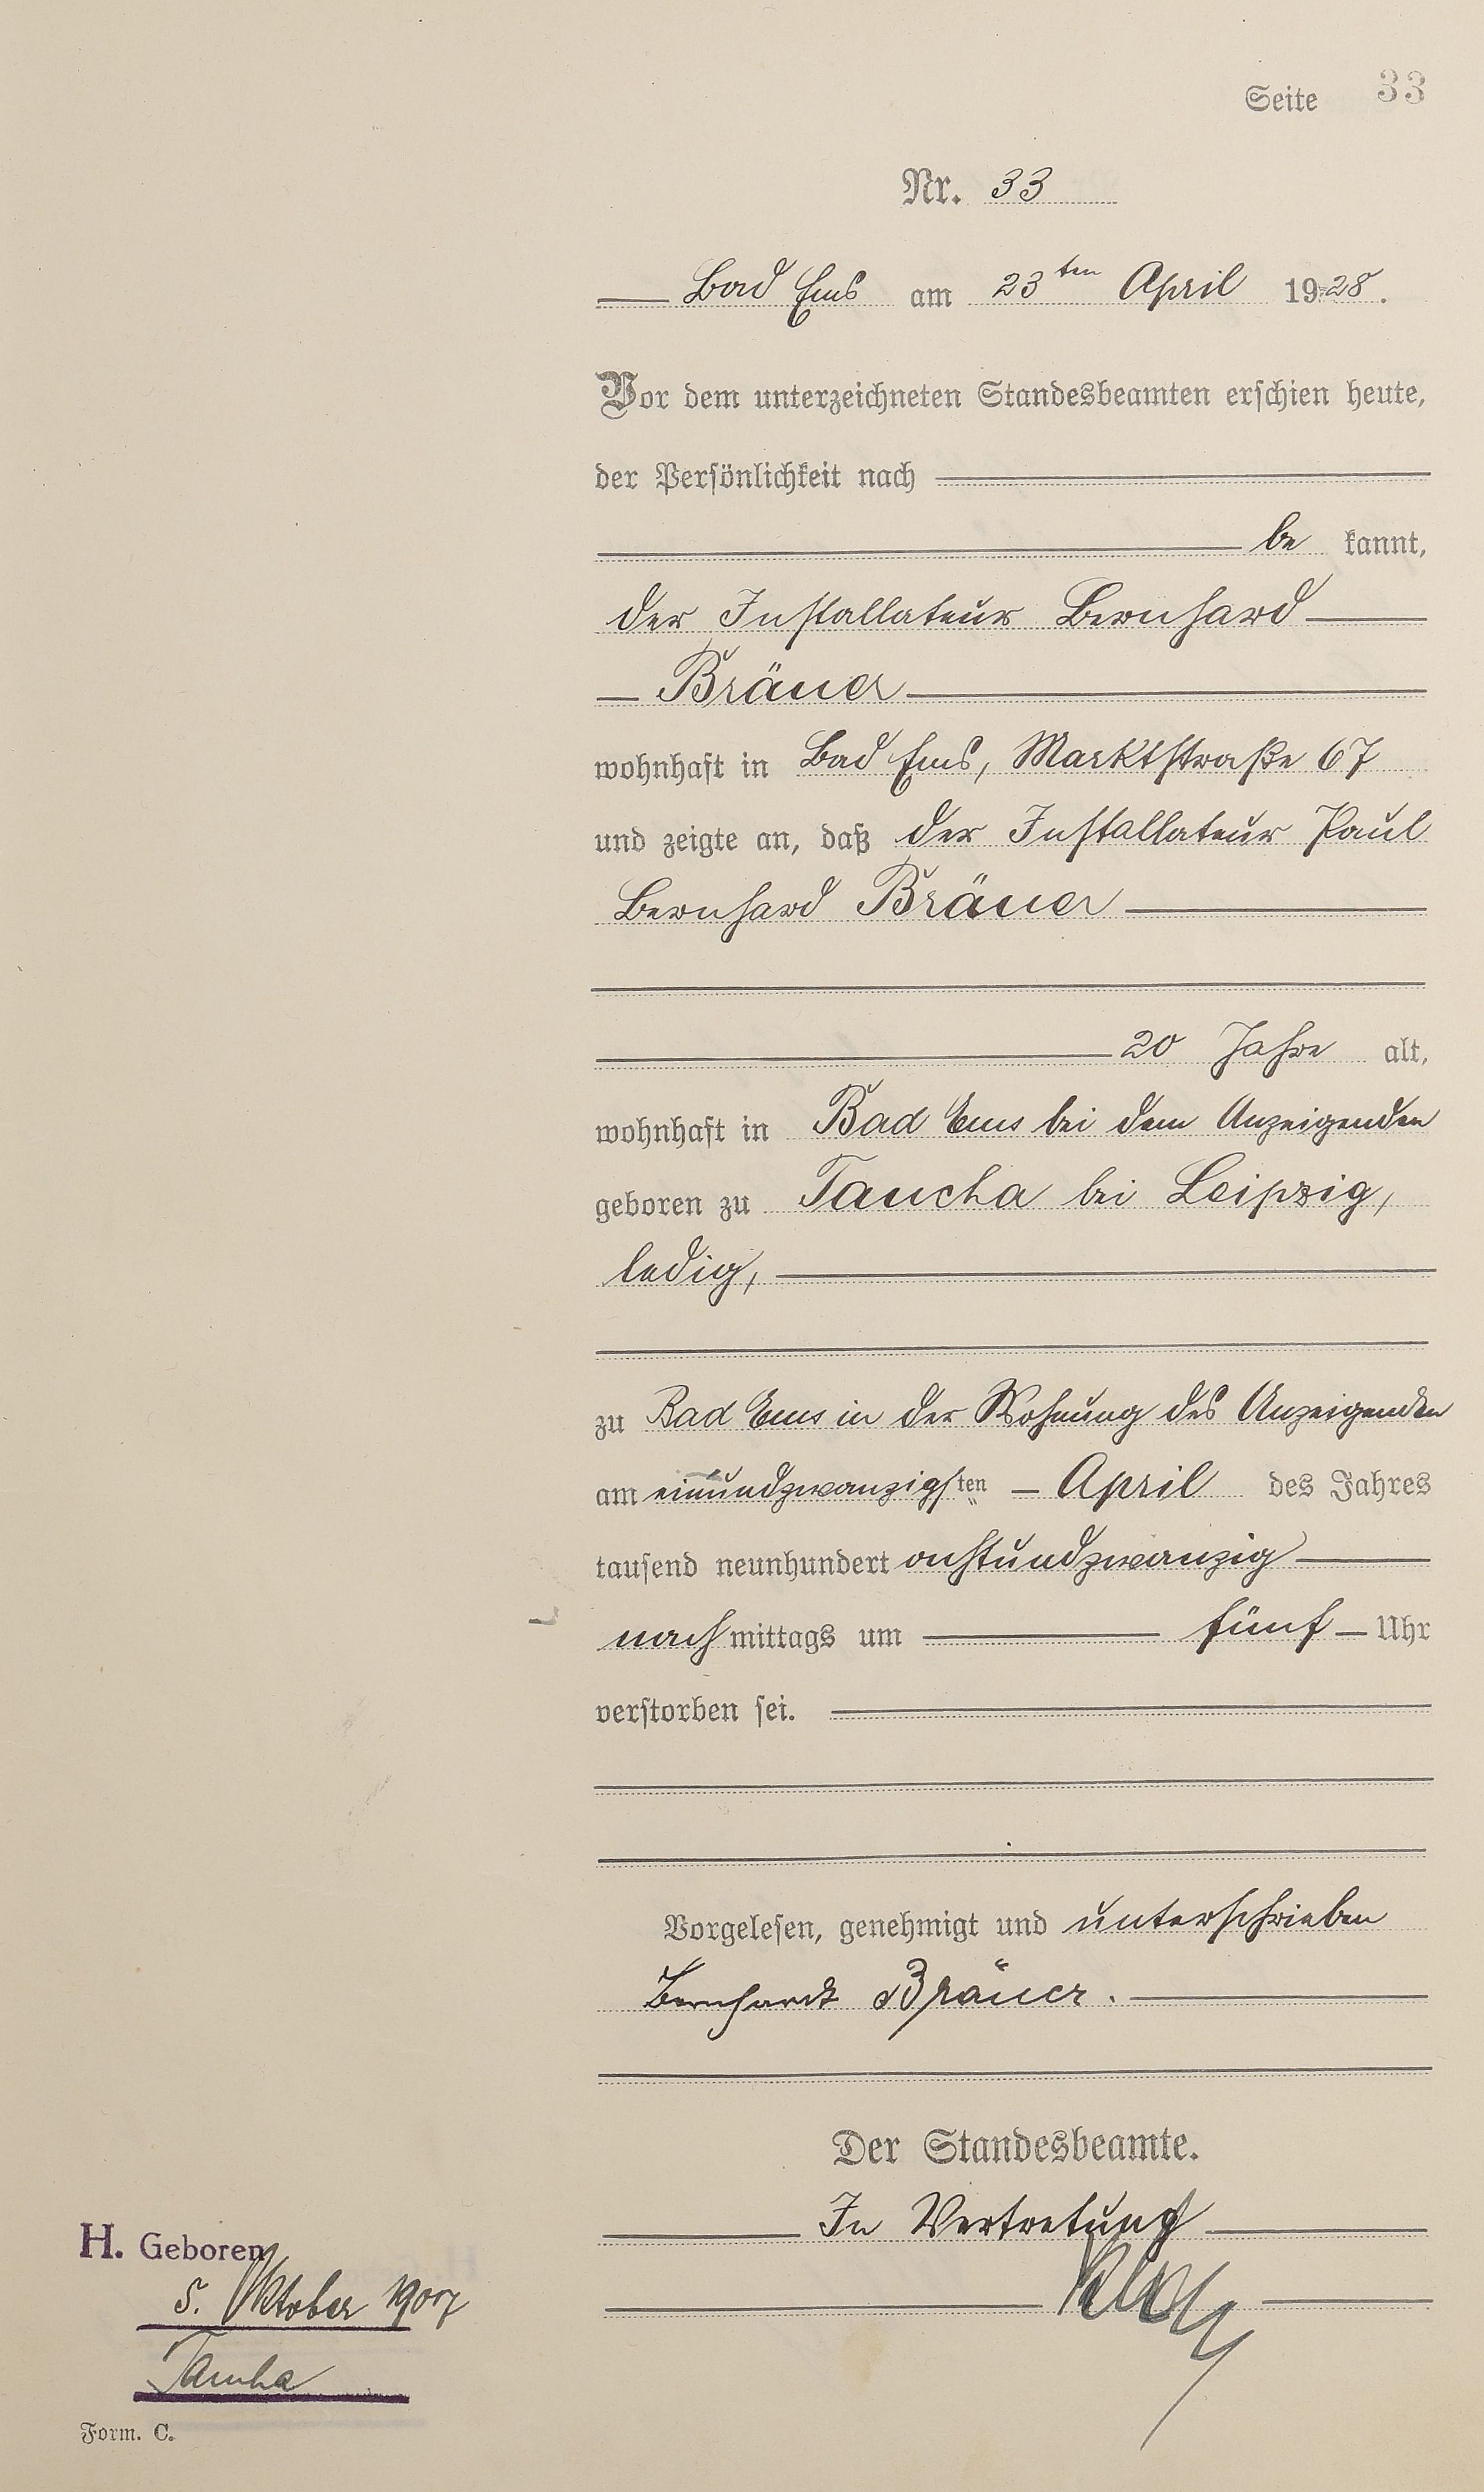 Seite 33
Nr. 33
Bad Ems am 23ten April 1928.
Vor dem unterzeichneten Standesbeamten erschien heute,
der Persönlichkeit nach
be kannt,
der Installateur Bernhard
Bräuer
wohnhaft in Bad Ems, Marktstraße 67
und zeigte an, daß der Installateur Paul
Bernhard Bräuer
20 Jahre alt,
wohnhaft in Bad Ems bei dem Anzeigenden
geboren zu Taucha bei Leipzig,
ledig,
zu Bad Ems in der Wohnung des Anzeigenden
am einundzwanzigsten April des Jahres
tausend neunhundert achtundzwanzig
nachmittags um fünf Uhr
verstorben sei.
Vorgelesen, genehmigt und unterschrieben
Bernhardt Bräuer.
Der Standesbeamte.
In Vertretung
H. Geboren
5. Oktober 1907
Taucha
Form. C.